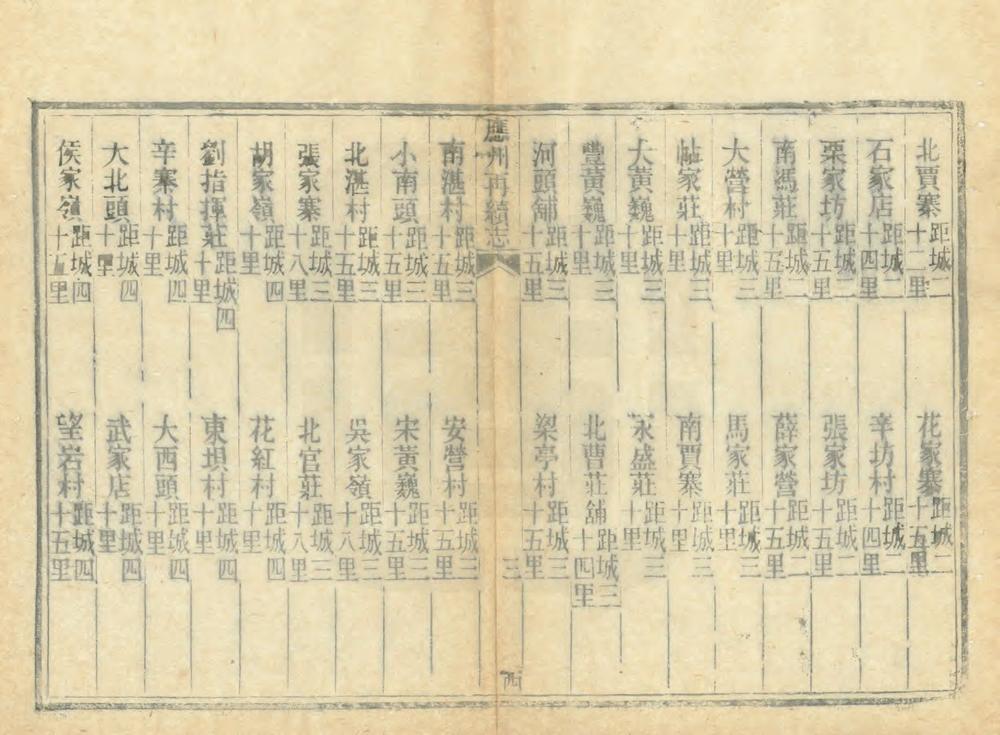 北賈寨距城二十二里　花家寨距城二十五里
石家店距城二十四里　辛坊村距城二十四里
栗家坊距城二十五里　張家坊距城二十五里
南馮莊距城二十五里　薛家營距城二十五里
大營村距城三十里　馬家莊距城三十里
帖家莊距城三十里　南賈寨距城三十里
大黃巍距城三十里　永盛莊距城三十里
豐黃巍距城三十里　北曹莊舖距城三十四里
河頭舖距城三十五里　梁亭村距城三十五里
應州再續志　三
南湛村距城三十五里　安營村距城三十五里
小南頭距城三十五里　宋黃巍距城三十五里
北湛村距城三十五里　吳家嶺距城三十八里
張家寨距城三十八里　北官莊距城三十八里
胡家嶺距城四十里　花紅村距城四十里
劉指揮莊距城四十里　東垻村距城四十里
辛寨村距城四十里　大西頭距城四十里
大北頭距城四十里　武家店距城四十里
侯家嶺距城四十五里　望岩村距城四十五里